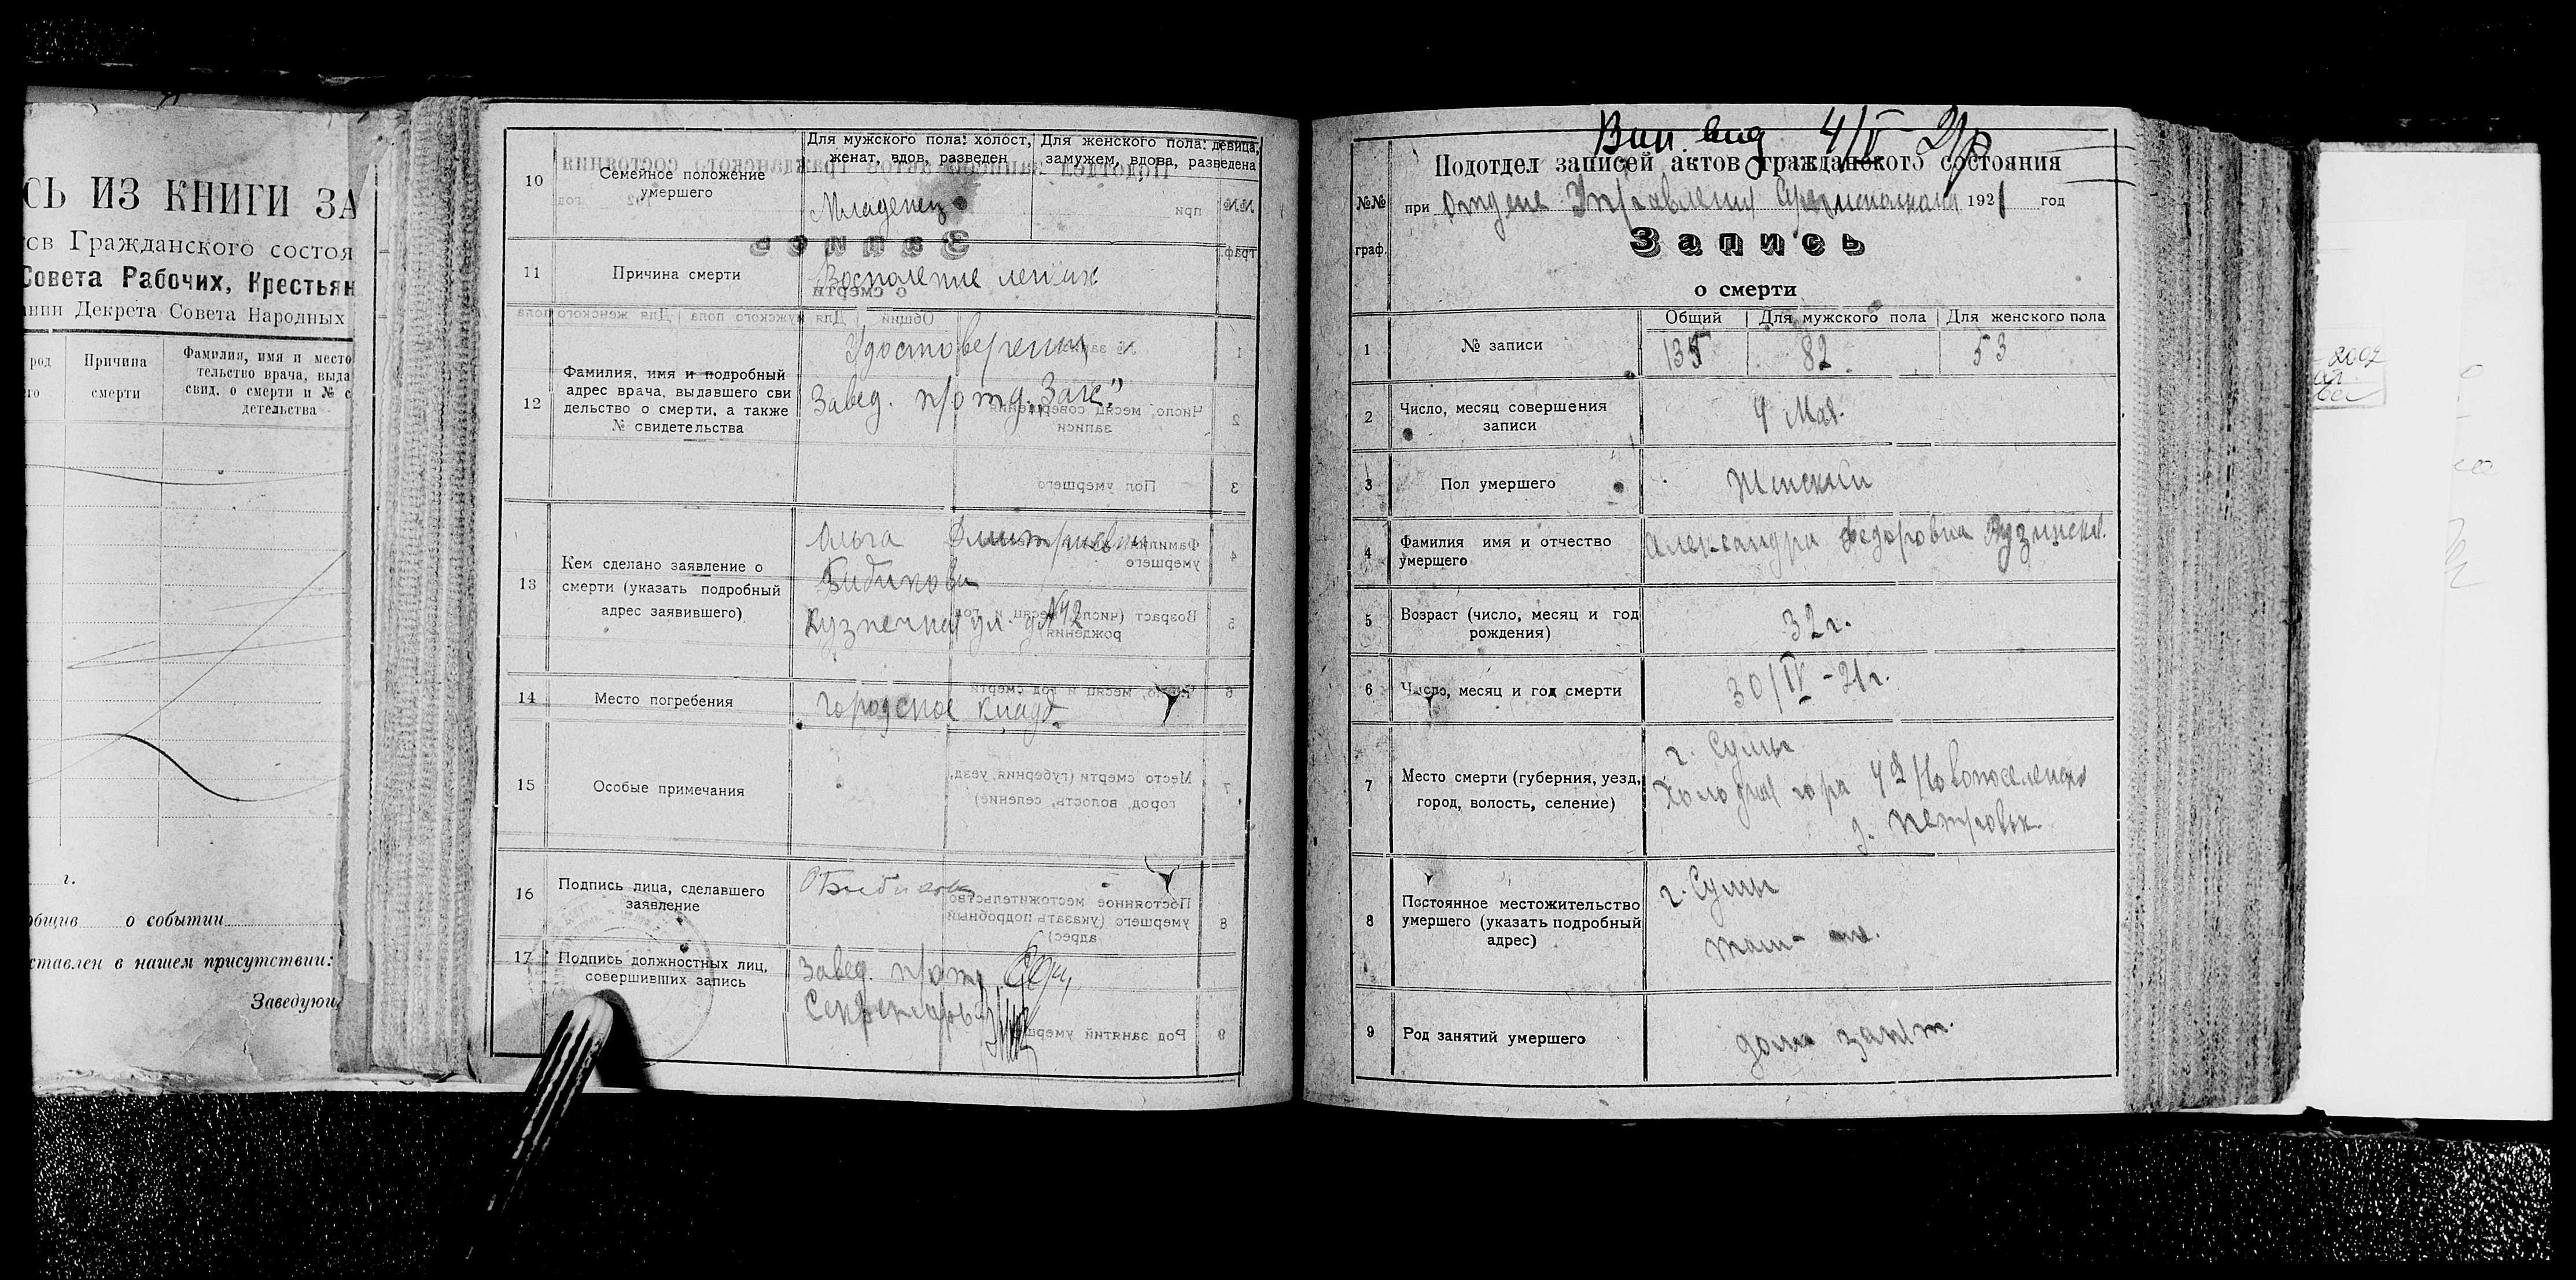 СЬ ИЗ КНИГИ ЗА
Гражданского состоя
Совета Рабочих, Крестьян
Декрета Совета Народных
род
Причина
смерти
Фамилия, имя и место
тельство врача, выда
свид. о смерти и № с
детельства
г.
о событии
ставлен в нашем присутствии:
Заведующ
10
Семейное положение
умершего
Для мужского пола: холост,
женат, вдов, разведен
Для женского пола: девица,
замужем, вдова, разведена
Младенец
11
Причина смерти
Воспаление легких
12
Фамилия, имя и подробный
адрес врача, выдавшего сви
дельство о смерти, а также
№ свидетельства
Удостоверении
Завед. п/отд. „Загс"
13
Кем сделано заявление о
смерти (указать подробный
адрес заявившего)
Ольга Дмитриевна
Бибикова
Кузнечная ул. д. №42
14
Место погребения
Городское кладб.
15
Особые примечания
16
Подпись лица, сделавшего
заявление
О Бибикова
17
Подпись должностных лиц,
совершивших запись
Завед. п/отд
Секретарь
4/V 21
Подотдел записей актов гражданского состояния
№№
граф.
при Отделе Управления 1921 год
Запись
о смерти
Общий
Для мужского пола
Для женского пола
1
№ записи
135
82
53
2
Число, месяц совершения
записи
4 Мая.
3
Пол умершего
Женский
4
Фамилия имя и отчество
умершего
Александра Федоровна
5
Возраст (число, месяц и год
рождения)
32 г.
6
Число, месяц и год смерти
30/IV-21 г.
7
Место смерти (губерния, уезд,
город, волость, селение)
г. Сумы
Холодная гора
8
Постоянное местожительство
умершего (указать подробный
адрес)
г. Сумы
9
Род занятий умершего
дом. занят.
2002